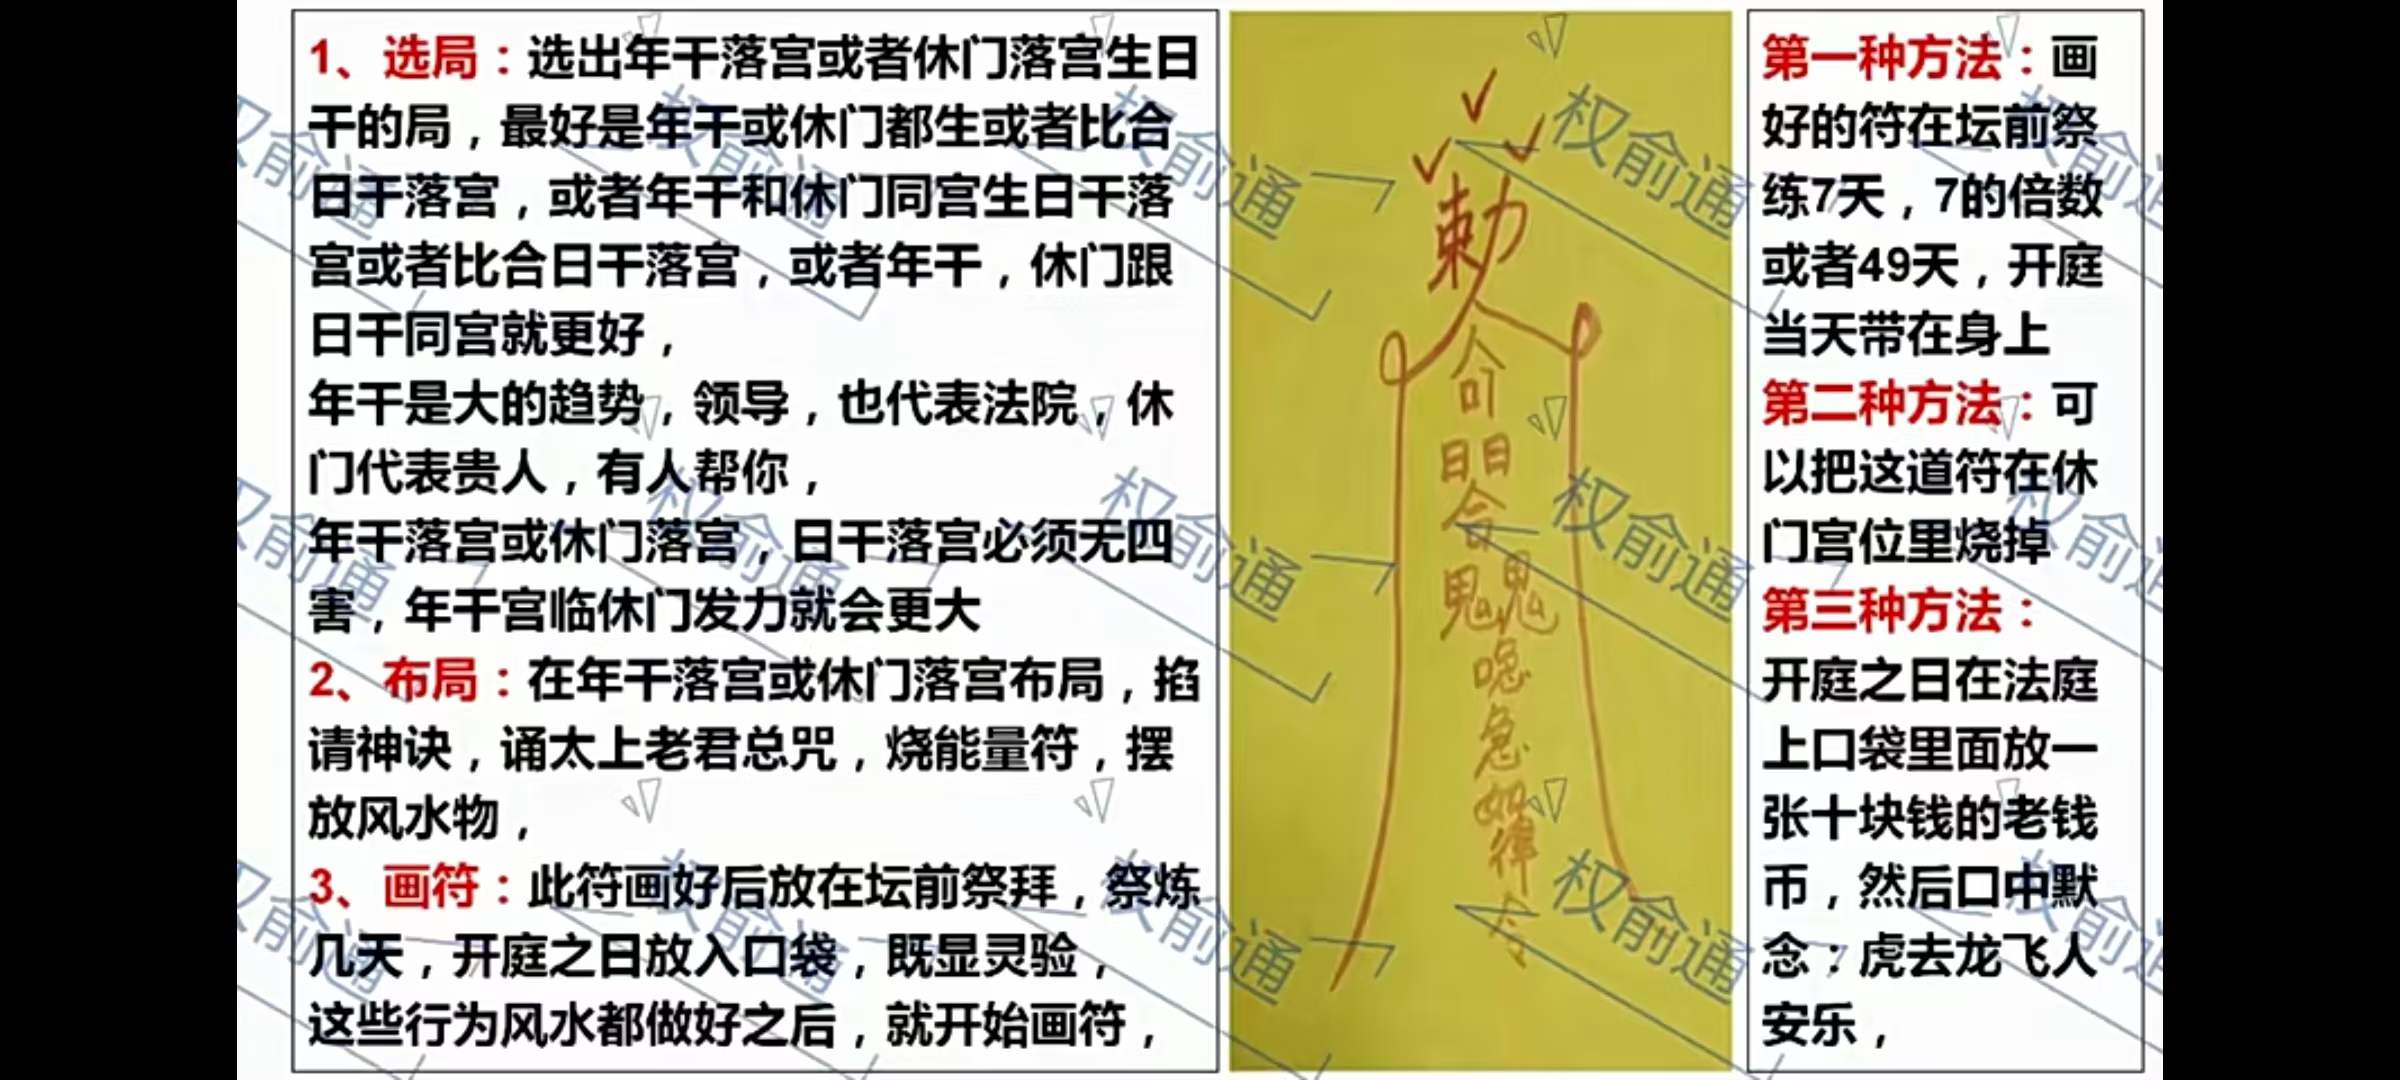 1、选局：选出年干落宫或者休门落宫生日
干的局，最好是年干或休门都生或者比合
日干落宫，或者年干和休门同宫生日干落
宫或者比合日干落宫，或者年干，休门跟
日干同宫就更好，
年干是大的趋势，领导，也代表法院，休
门代表贵人，有人帮你，
年干落宫或休门落宫，日干落宫必须无四
害，年干宫临休门发力就会更大
2、布局：在年干落宫或休门落宫布局，掐
请神诀，诵太上老君总咒，烧能量符，摆
放风水物，
3、画符：此符画好后放在坛前祭拜，祭炼
几天，开庭之日放入口袋，既显灵验，
这些行为风水都做好之后，就开始画符，
敕
命
日日
合
鬼鬼
急
如
律
令
第一种方法：画
好的符在坛前祭
练7天，7的倍数
或者49天，开庭
当天带在身上
第二种方法：可
以把这道符在休
门宫位里烧掉
第三种方法：
开庭之日在法庭
上口袋里面放一
张十块钱的老钱
币，然后口中默
念：虎去龙飞人
安乐，
权俞通
权俞通
权俞通
权俞通
权俞通
权俞通
权俞通
权俞通
权俞通
权俞通
权俞通
权俞通